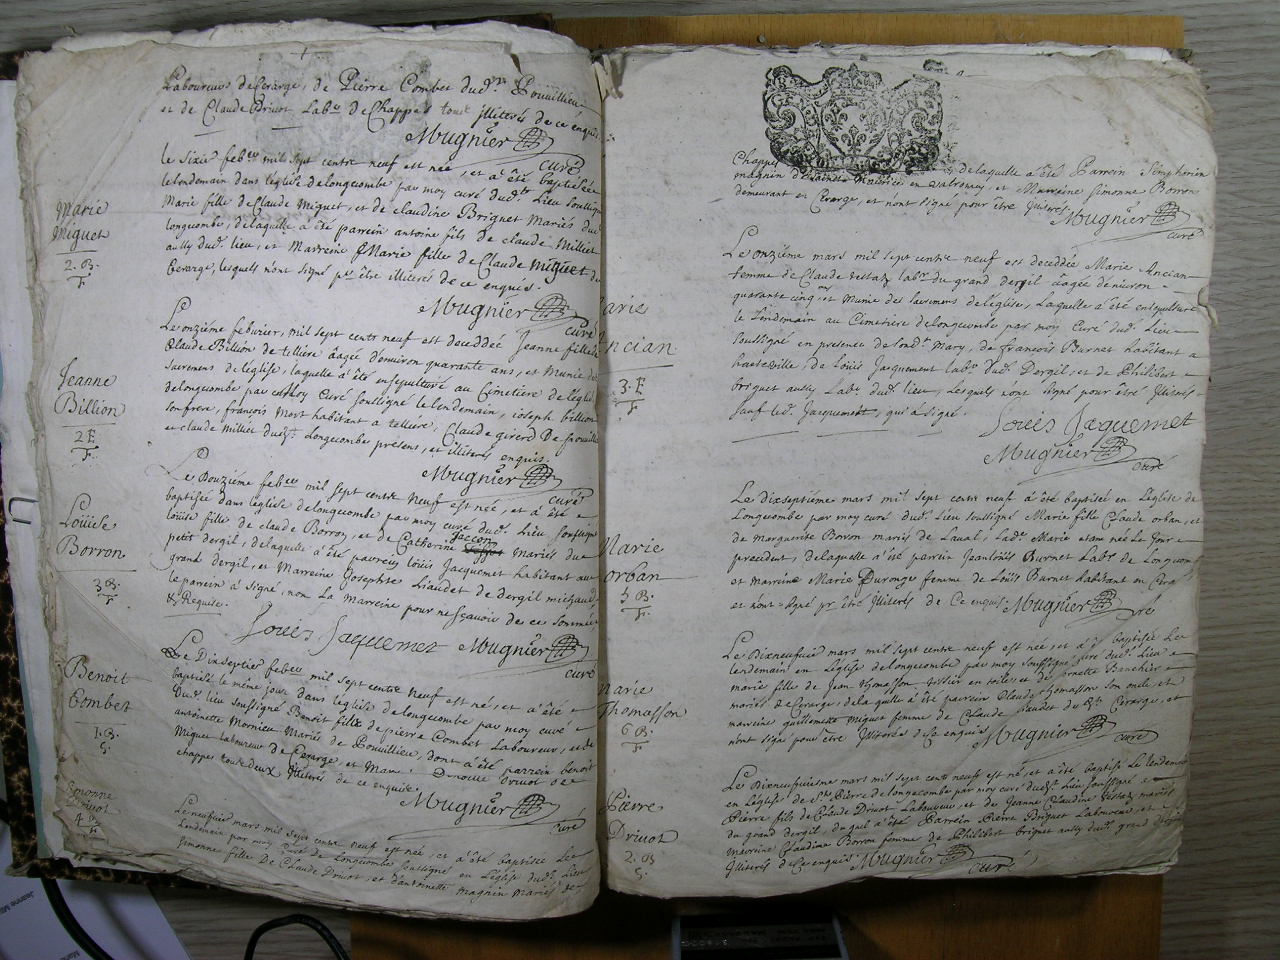 Laboureurs de Cerarge, de Pierre Combet dud. Pouillieu
et de Claude Druot Labr. de Chappes tous illiterés de ce enquis
Mugnier
curé
Marie
Miguet
2. B.
F.
le Sixie febvr mil sept cents neuf est née, et a été baptisée
le lendemain dans l'église de longecombe par moy curé dud. Lieu soussigné
Marie fille de Claude Miguet, et de claudine Briguet Mariés du
longecombe, de laquelle a été parein antoine fils de claude Milliet
aussy dud. lieu, et Marreine Marie fille de Claude Miguet de
Cerarge, lesquels n'ont signé pr. être illiterés de ce enquis.
Mugnier
curé
Jeanne
Billion
2 E.
F.
Le onziéme febvrier, mil sept cents neuf est deceddée Jeanne fille de
Claude Billion de telliere âagée d'environ quarante ans, et Munie des
Sacremens de l'église, laquelle a été ensepulturé au Cimetiere de l'églis
de longecombe par moy Curé soussigné le lendemain, joseph billion
son frere, françois Mort habitant a telliere, Claude girerd De
et claude Milliet dud. Longecombe présens, et illiterés enquis.
Mugnier
curé
Loüise
Borron
3 B.
F.
Le Douziéme febvr mil sept cents Neuf est née, et a été
baptisée dans l'église de longecombe par moy curé dud. Lieu soussigné
loüise fille de claude Borron, et de Catherine Jaccon Mariés du
petit dergil, de laquelle a été parrein loüis Jacquemet habitant au
grand dergil, et Marreine Josephte Liaudet de dergil michaud,
le parein a signé, non La Marreine pour ne sçavoir de ce sommée
& Requise.
Louis Jaquemet Mugnier
curé
Benoit
Combet
1. B.
G.
Le Dixseptie febvr mil sept cents Neuf est né, et a été
baptisé le même jour dans l'église de longecombe par moy curé
Dud. lieu soussigné Benoit fils de pierre Combet Laboureur, et de
antoinette Mornieu Mariés de Pouillieu, dont a été parrein benoit
Miguet laboureur de Cerarge, et Marr. Druot de
chappes tous deux illiterés de ce enquis.
Mugnier
curé
Simonne
Druot
4 B.
F.
Le neufvié mars mil sept cents neuf est née, et a été baptisée le
Lendemain par moy Curé de Longecombe soussigné en l'église dud. Lieu
Simonne fille De Claude Druot, et d'antoinette magnin mariés de
Chappes de laquelle a été Parrein Simphorin
magnin en Valromey, et Marreine Simonne Borron
demeurant en Cerarge, et n'ont signé pour être illiterés
Mugnier
curé
Marie
Ancian
3. E
F.
Le onziéme mars mil sept cents neuf est deceddée Marie Ancian
femme de Claude Vessaz labr. du grand dergil âagée d'environ
quarante cinq ans Munie des sacremens de l'église, Laquelle a été ensepulturé
le Lendemain au Cimetiere de longecombe par moy Curé dud. Lieu
soussigné en presence de sond. Mary, de françois Burnet habitant a
hauteville, de Loüis Jacquemet labr. dud. Dergil, et de Philibert
briguet aussy Labr. dud. lieu, Lesquels n'ont signé pour être illiterés
sauf led. Jacquemet, qui a signé.
Louis Jaquemet
Mugnier
curé
Marie
orban
5 B.
F.
Le dixseptiéme mars mil sept cents neuf a été baptisée en L'église de
Longecombe par moy curé dud. Lieu soussigné Marie fille Claude orban, et
de Marguerite Boron mariés de Laval; Lade. Marie etant née Le jour
precedent, de laquelle a été parein Jean loüis Burnet Labr. de Longecom
et marreine Marie Duronge femme de Loüis Burnet habitant en Cera
et n'ont signé pr être illiterés de Ce enquis Mugnier
curé
Marie
Thomasson
6 B.
F.
Le Dixneufuié mars mil sept cents neuf est née et a été baptisée Le
lendemain en L'église de longecombe par moy soussigné curé dud. Lieu
marie fille de Jean thomasson tissier en toile, et de pernette
mariés de Cerarge, de laquelle a été parrein Claude thomasson son oncle, et
marreine guillemette Miguet femme de Claude Liaudet du dt. Cerarge, et
n'ont signé pour être illiterés de Ce enquis Mugnier
curé
Pierre
Druot
2. B
G.
Le Dixneufuiéme mars mil sept cents neuf est né, et a été baptisé Le lendem
en L'église de St. Pierre de longecombe par moy curé dud. Lieu soussigné
Pierre fils de Claude Druot Laboureur, et de Jeanne Claudine Vessaz mariés
du grand dergil, duquel a été Parrein Pierre Briguet Laboureur, et
mareine Claudine Borron femme de Philibert briguet aussy dud. grand dergil
illiterés de Ce enquis Mugnier
curé